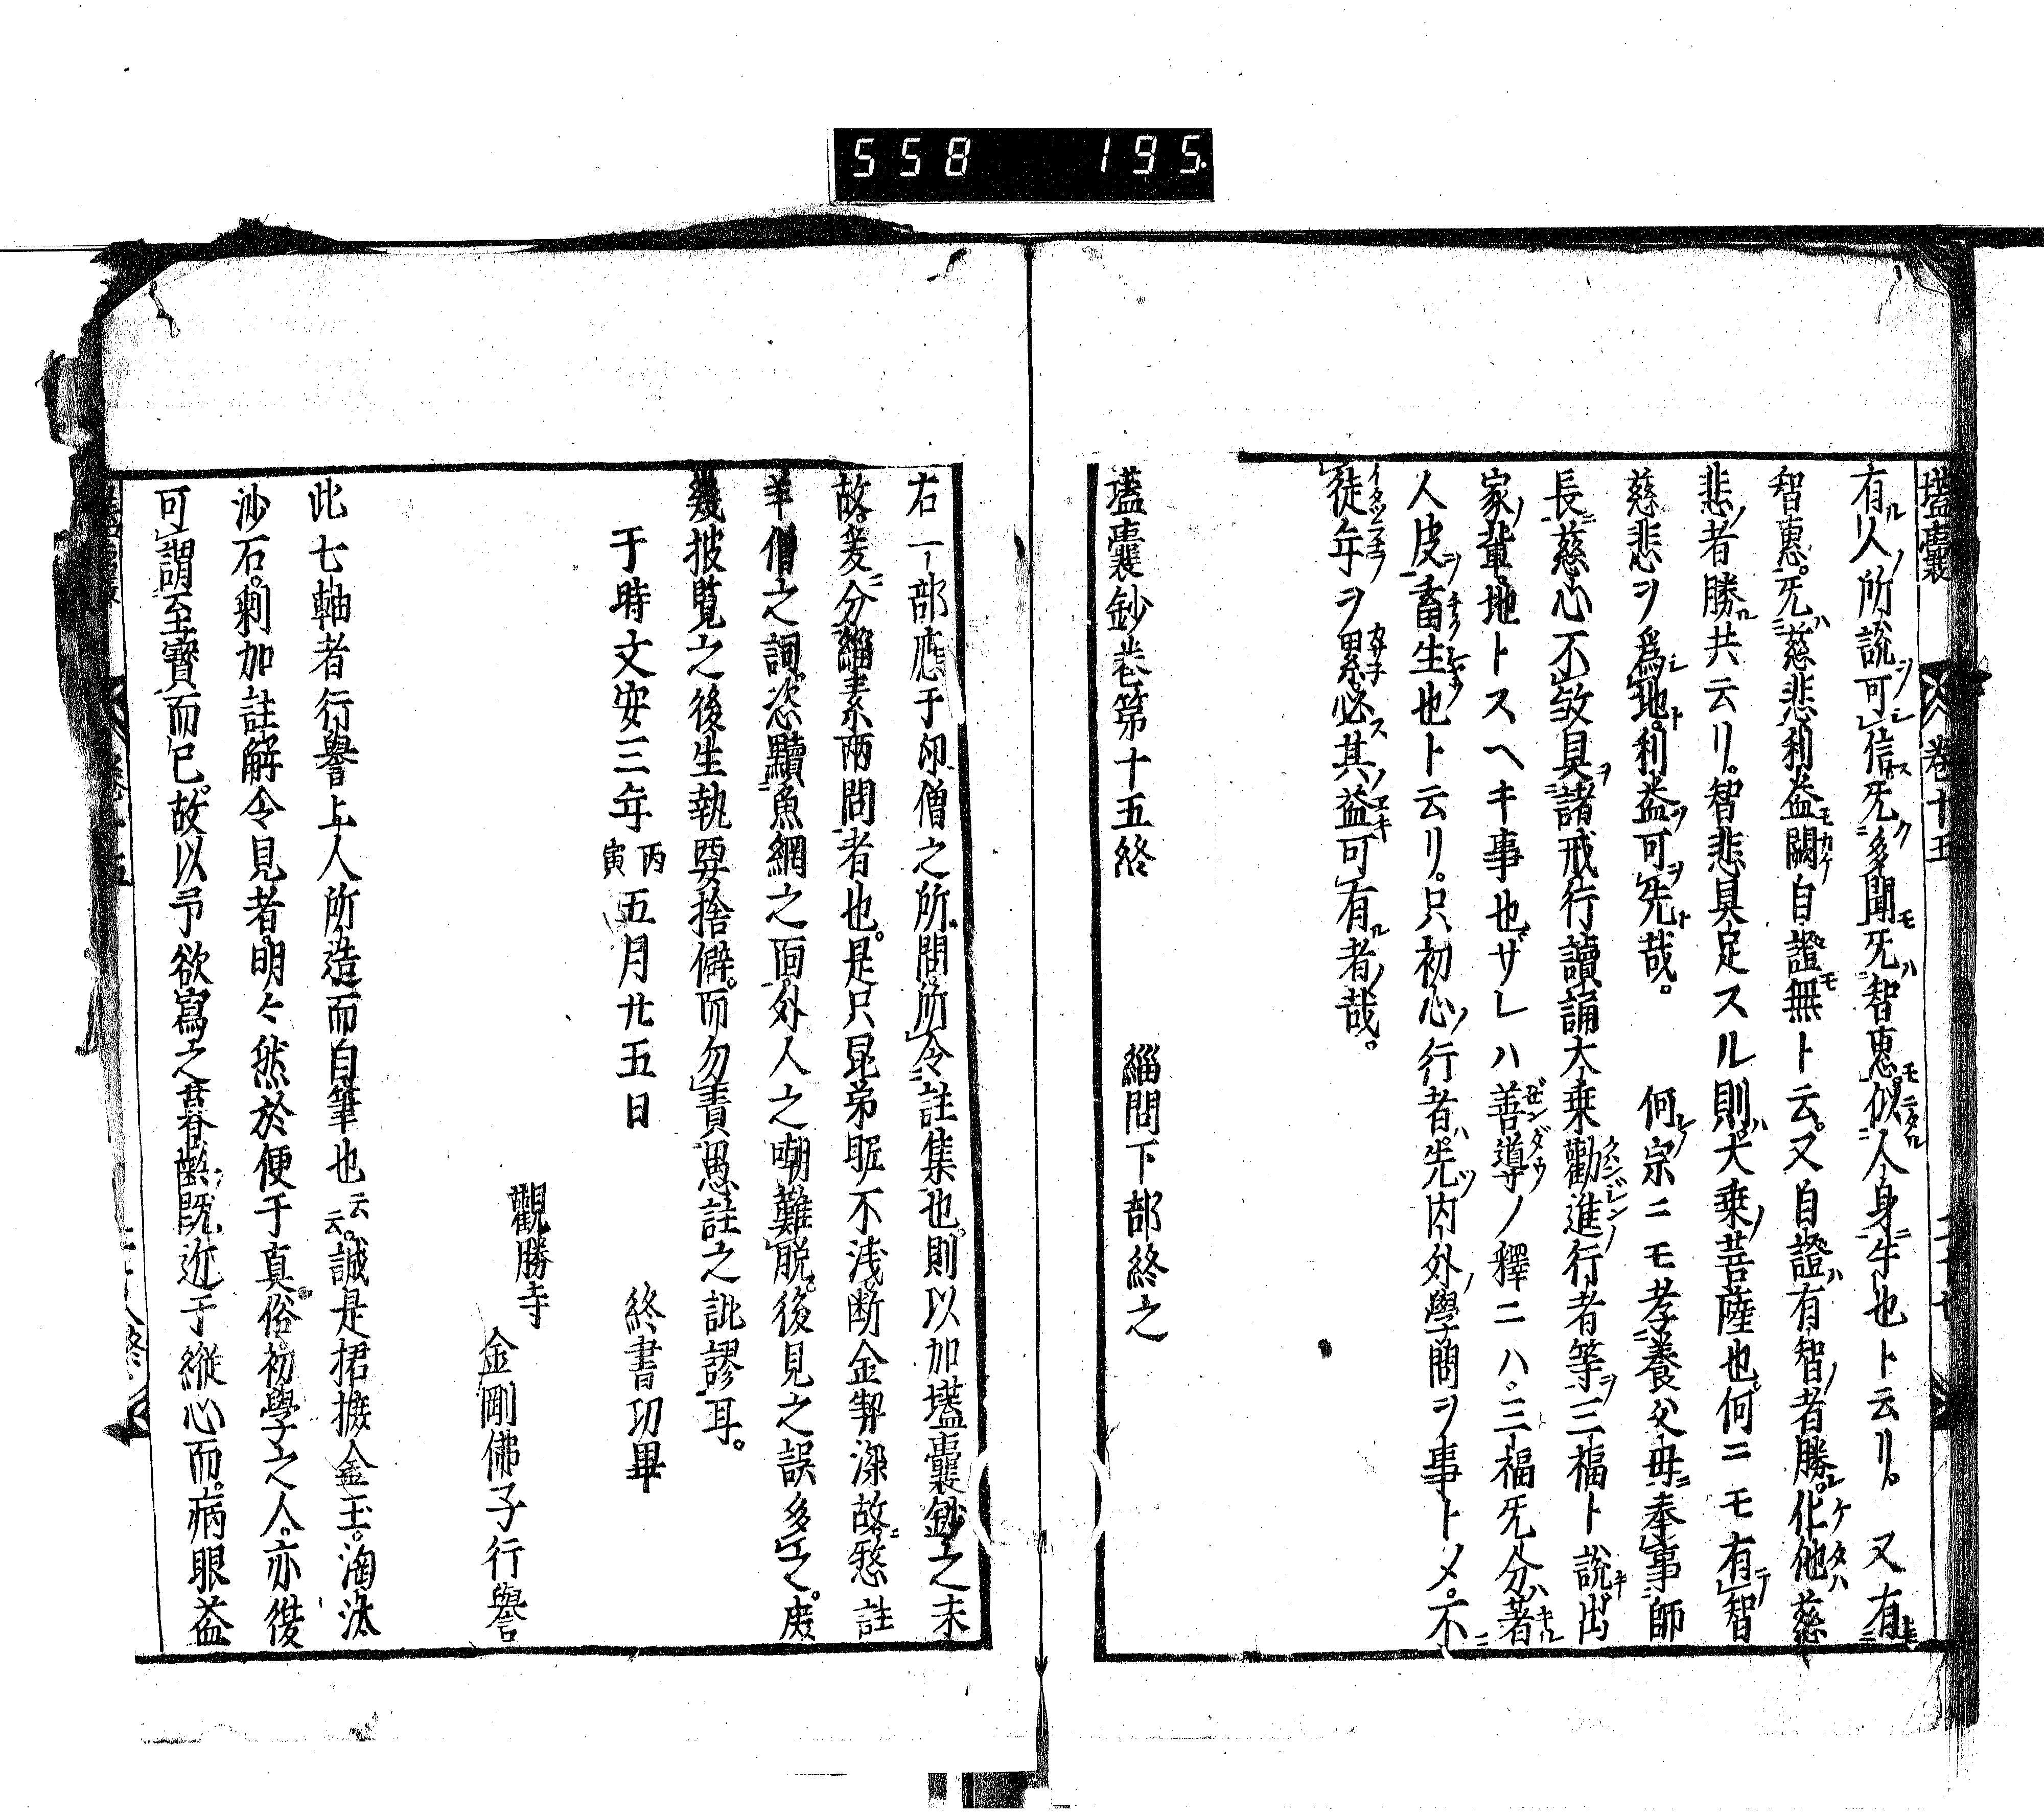 558 195.
壒囊 卷十五
有人ノ所説可信ス无ク多聞モ无ハ智惠モ似タル人身ニ牛也ト云リ。又有
智惠。无ハ慈悲利益モカケ闕自證モ無ト云。又自證ハ有智ノ者勝レ。化他ハ慈
悲ノ者勝ル共云リ。智悲具足スル則ハ。大乗ノ菩薩也。何ニモ有テ智
慈悲ヲ爲シ地ト。利益ヲ可先ト哉。 何レノ宗ニモ孝養父母ニ奉事師
長ニ慈心不殺具ヲ諸戒行讀誦大乗勸進行者等ヲ三福ト説キ。出
家ノ軰地トスヘキ事也。ザレハ善導ノ釋ニハ。三福无分ハ著キル
人皮ヲ畜生也ト云リ。只初心ノ行者ハ先ツ内外ノ學問ヲ事トメ。不
徒ニ年ヲ累必ス其ノ益可有ル者ノ哉。
壒囊鈔卷第十五終 緇問下部終之
右一部應于卯僧之所問所令註集也。則以加壒囊鈔之末
故。爰分緇素兩問者也。是只昆弟眤不浅断金契深故ニ憖註
羊僧之詞。恣黷魚網之面。外人之嘲難脱。後見之誤多之。庻
幾披覧之後生執要捨僻。而勿責愚註之訛謬耳。
于時文安三年丙寅五月廿五日 終書功畢
觀勝寺
金剛佛子行譽
此七軸者行譽上人所造而自筆也云云。誠是捃摭金玉。淘汰
沙石。剰加註解令見者。明々然於便于真俗。初學之人。亦復
可謂至寶而已。故以予欲寫之暮齡既近于縱心而。病眼益